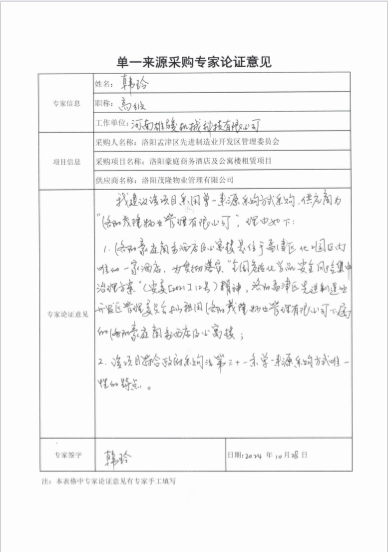 单一来源采购专家论证意见
专家信息
姓名：韩玲
职称：高级
工作单位：河南雄骏机械科技有限公司
项目信息
采购人名称：洛阳孟津区先进制造业开发区管理委员会
采购项目名称：洛阳豪庭商务酒店及公寓楼租赁项目
供应商名称：洛阳茂隆物业管理有限公司
专家论证意见
我建议该项目采用单一来源采购方式采购，供应商为
"洛阳茂隆物业管理有限公司"，理由如下：
1、洛阳豪庭商务酒店及公寓楼是位于孟津区化工园区内
唯一的一家酒店，为贯彻落实"全国危险化学品安全风险集中
治理方案"（安委[2021]12号）精神，洛阳孟津区先进制造业
开发区管理委员会拟租用洛阳茂隆物业管理有限公司下属
的洛阳豪庭商务酒店及公寓楼；
2、该项目符合政府采购法第三十一条单一来源采购方式唯一
性的特点。
专家签字
韩玲
日期：2024 年 10 月 28 日
注：本表格中专家论证意见有专家手工填写